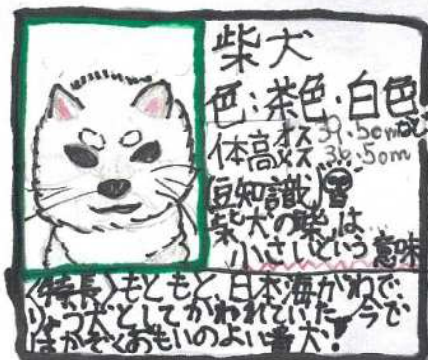 柴犬
色:茶色・白色など
体高オス 39.5cm
メス 36.5cm
豆知識
柴犬の柴は
小さいという意味
〈特長〉もともと、日本海がわで
りょう犬としてかわれていた。今で
はかぞくおもいのよい番犬!